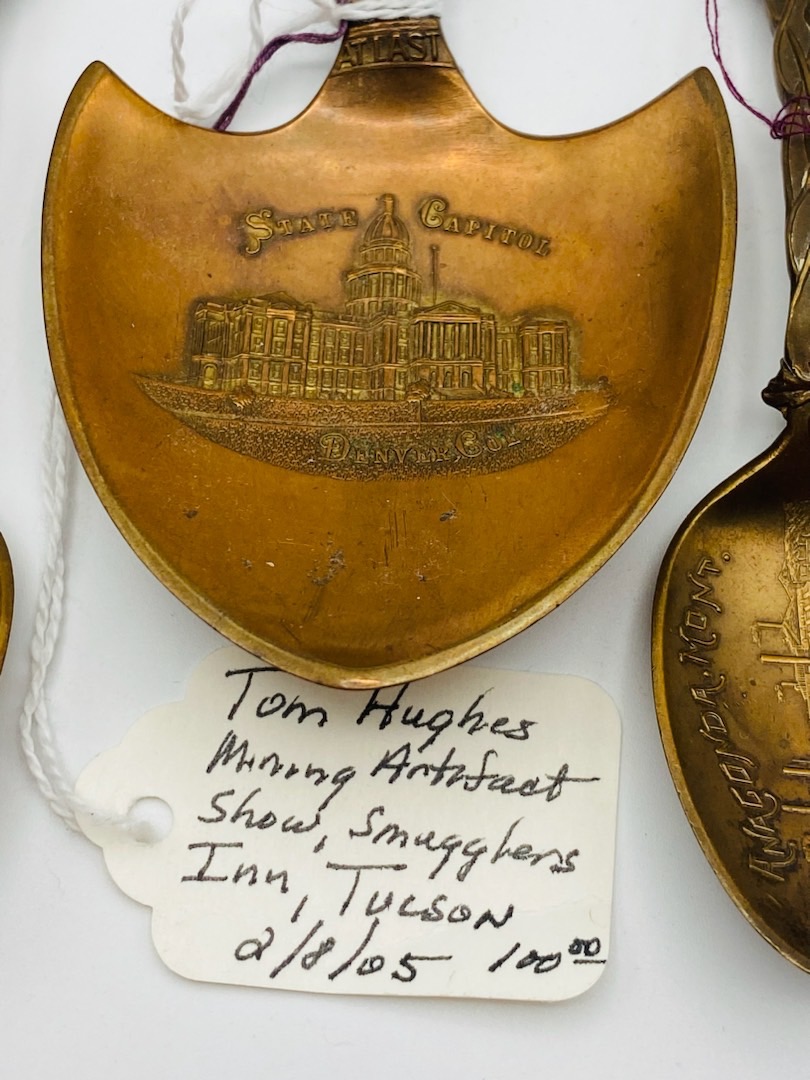 AT LAST
STATE CAPITOL
DENVER, COL.
ANACONDA, MONT.
Tom Hughes
Mining Artifact
Show, Smugglers
Inn, Tucson
2/8/05 100.00